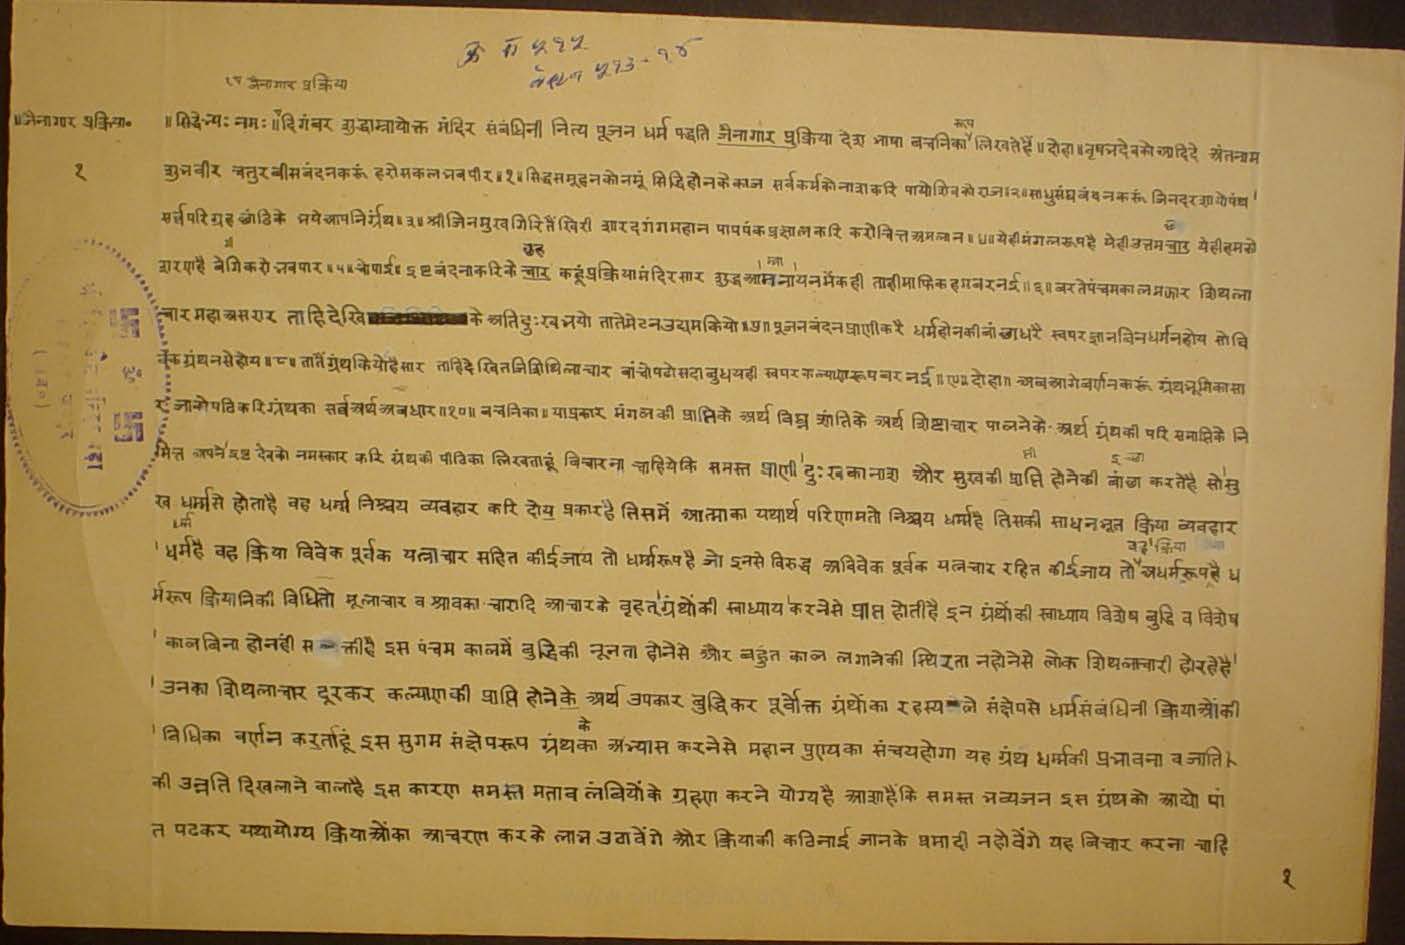 जैनागार प्रक्रिया
॥जैनागार प्रक्रिया॰
१
॥सिद्धेभ्यः नमः॥ दिगंबर शुद्धाम्नायोक्त मंदिर संबंधिनी नित्य पूजन धर्म पद्धति जैनागार प्रक्रिया देश भाषा बचनिका रूप लिखतेहैं॥दोहा॥वृषभदेवकोआदिदे अंतनाम
शुभवीर चतुरबीसबंदनकरूं हरोसकलभवपीर॥१॥सिद्धसमूहनकोनमूं सिद्धिहोनकेकाज सर्वकर्मकोनाशकरि पायोशिवकोराज॥२॥साधुसंघबंदनकरूं
सर्वपरिग्रहछांडिके भयेआपनिर्ग्रंथ॥३॥श्रीजिनमुखगिरितैंखिरी शारदगंगमहान पापपंकप्रक्षालकरि करोचित्तअमलान॥४॥येहीमंगलरूपहै येहीउत्तमचार येहीहमको
शरणहै बेगिकरोभवपार॥५॥चोपाई॥इष्टबंदनाकरिके चार कहूंप्रक्रियामंदिरसार शुद्ध नायनमेंकही ताहीमाफिकहमबरनई॥६॥बरतेपंचमकालमझार शिथला
चारमहाअसरार ताहिदेखि के अतिदुःखभयो तातेमेटनउद्यमकियो॥७॥पूजनबंदनप्राणीकरै धर्महोनकीबांछाधरै स्वपरज्ञानबिनधर्मनहोय सोवि
वेकग्रंथनसेहोय॥८॥तातैंग्रंथकियोहैसार ताहिदेखितजिशिथिलाचार बांचोपढोसदाबुधयही स्वपरकल्याणरूपबरनई॥९॥दोहा॥अबआगेबर्णनकरूं ग्रंथभूमिकासा
र जाकोपढिकरिग्रंथका सर्वअर्थअवधार॥१०॥बचनिका॥याप्रकार मंगलकी प्राप्तिके अर्थ विघ्न शांतिके अर्थ शिष्टाचार पालनेके अर्थ ग्रंथकी परिसमाप्तिके नि
मित्त अपने इष्ट देवको नमस्कार करि ग्रंथकी पीठिका लिखताहूं विचारना चाहियेकि समस्त प्राणी दुःखकानाश और सुखकी प्राप्ति होनेकी बांछा करतेहै सोसु
ख धर्मसे होताहै वह धर्म निश्चय व्यवहार करि दोय प्रकारहै तिसमें आत्माका यथार्थ परिणामतो निश्चय धर्महै तिसकी साधनभूत क्रिया व्यवहार
धर्महै वह क्रिया विवेक पूर्वक यत्नाचार सहित कीईजाय तो धर्मरूपहै जो इनसे विरुद्ध अविवेक पूर्वक यत्नचार रहित कीईजाय तो वह क्रिया अधर्मरूपहै ध
र्मरूप क्रियानिकी विधितो मूलाचार व श्रावकाचारादि आचारके वृहत्ग्रंथोंकी स्वाध्याय करनेसे प्राप्त होतीहै इन ग्रंथोंकी स्वाध्याय विशेष बुद्धि व विशेष
कालबिना होनहीं सक्तीहै इस पंचम कालमें बुद्धिकी नूनता होनेसे और बहुत काल लगानेकी स्थिरता नहोनेसे लोक शिथलाचारी होरहेहै
उनका शिथलाचार दूरकर कल्याणकी प्राप्ति होनेके अर्थ उपकार बुद्धिकर पूर्वोक्त ग्रंथोंका रहस्य ले संक्षेपसे धर्मसंबंधिनी क्रियाओंकी
विधिका वर्णन करताहूं इस सुगम संक्षेपरूप ग्रंथके अभ्यास करनेसे महान पुण्यका संचयहोगा यह ग्रंथ धर्मकी प्रभावना व जाति
की उन्नति दिखलाने वालाहै इस कारण समस्त मताव लंबियोंके ग्रहण करने योग्यहै आशाहैकि समस्त भव्यजन इस ग्रंथको आद्यो पां
त पढकर यथायोग्य क्रियाओंका आचरण करके लाभ उठावेंगे और क्रियाकी कठिनाई जानके प्रमादी नहोवेंगे यह बिचार करना चाहि
१